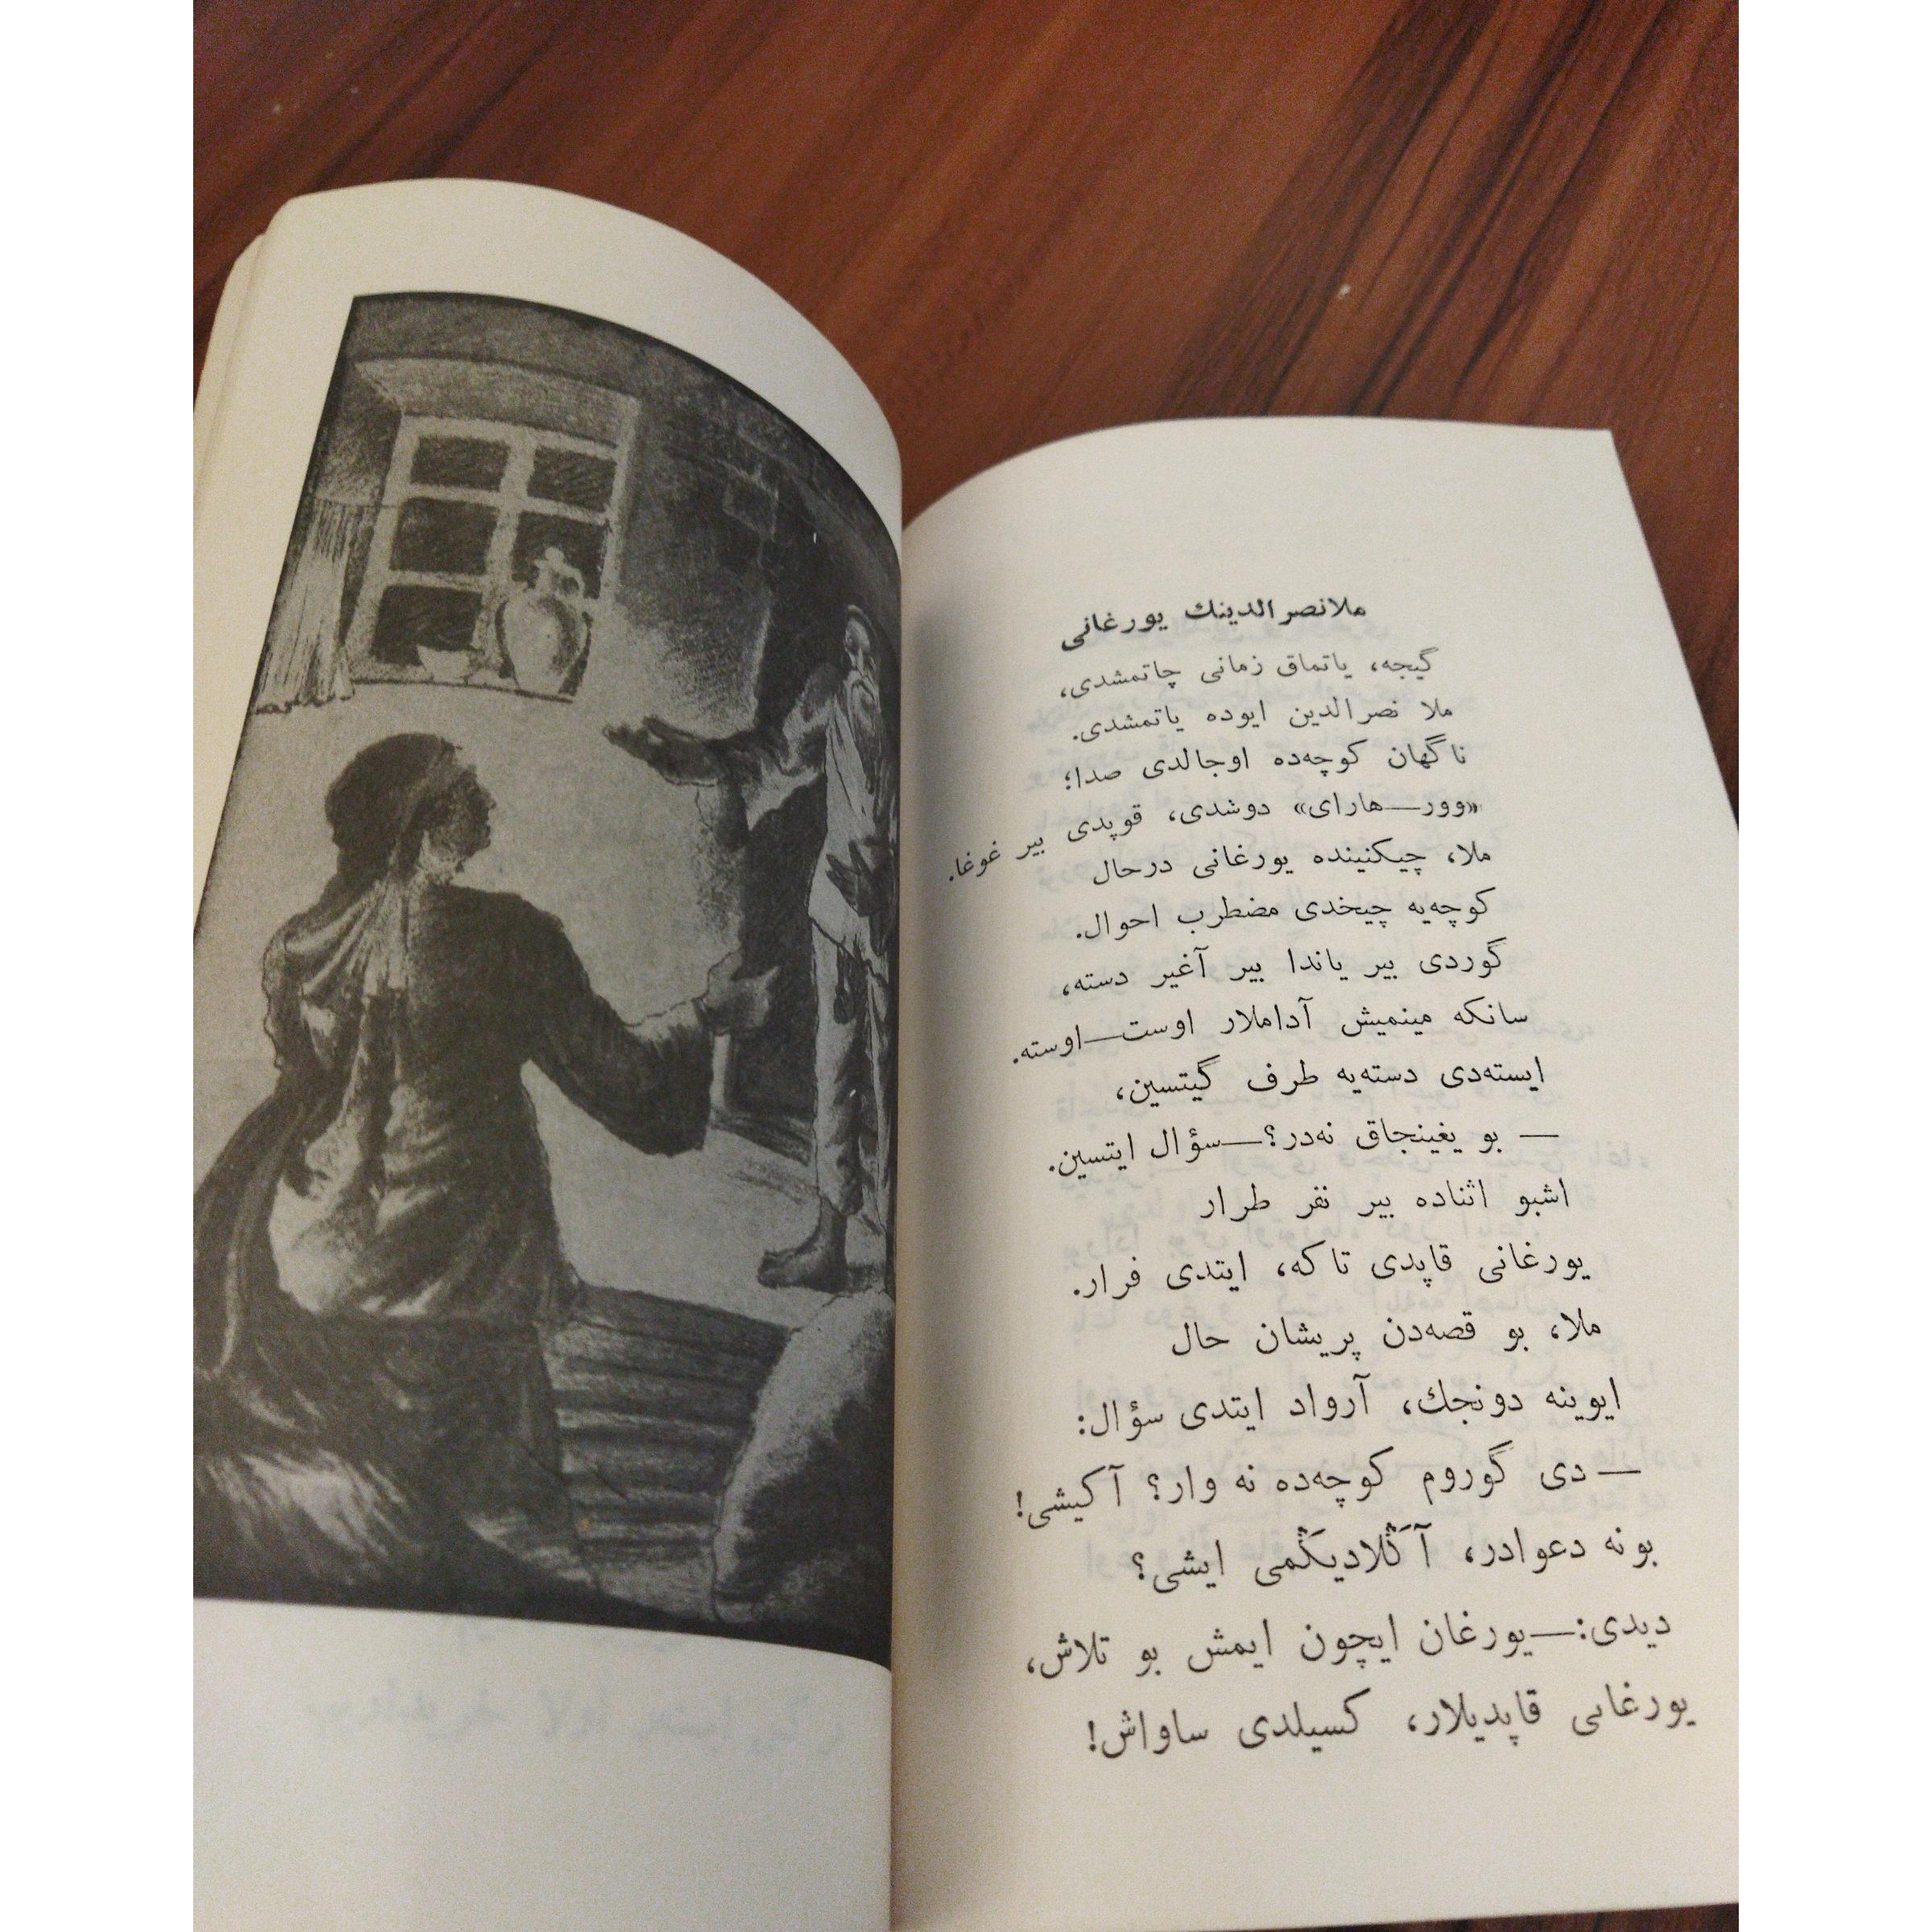 ملانصرالدینك یورغانی
گیجه، یاتماق زمانی چاتمشدی،
ملا نصرالدین ایوده یاتمشدی.
ناگهان کوچه‌ده اوجالدی صدا؛
«وور—هارای» دوشدی، قوپدی بیر غوغا.
ملا، چیکنینده یورغانی درحال
کوچه‌یه چیخدی مضطرب احوال.
گوردی بیر یاندا بیر آغیر دسته،
سانکه مینمیش آداملار اوست—اوسته.
ایسته‌دی دسته‌یه طرف گیتسین،
— بو یغینجاق نه‌در؟—سؤال ایتسین.
اشبو اثناده بیر نفر طرار
یورغانی قاپدی تاکه، ایتدی فرار.
ملا، بو قصه‌دن پریشان حال
ایوینه دونجك، آرواد ایتدی سؤال:
—دی گوروم کوچه‌ده نه وار؟ آکیشی!
بونه دعوادر، آڭلادیڭمی ایشی؟
دیدی:—یورغان ایچون ایمش بو تلاش،
یورغانی قاپدیلار، کسیلدی ساواش!